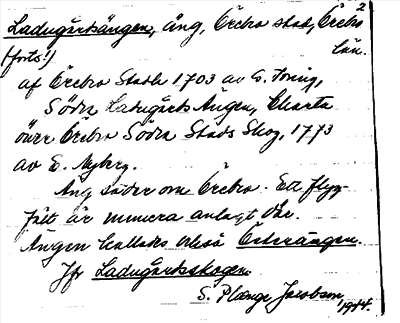 2
Ladugårdsängen, äng, Örebro stad, Örebro
(forts.) län.
af Örebro Stadh 1703 av G. Toring,
Södra Ladugårds Ängen, Charta
över Örebro Södra Stads Skog, 1773
av E. Nyberg.
Äng söder om Örebro. Ett flyg-
fält är numera anlagt där.
Ängen kallades också Österängen.
Jfr Ladugårdsskogen.
S. Plænge Jacobson, 1944.